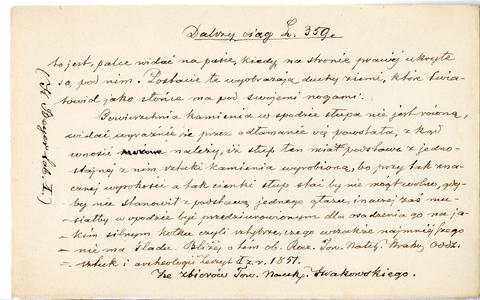 Dalszy ciąg L. 359.
to jest, palce widać na pasie, kiedy na stronie prawej ukryte
są pod nim. Postacie te wyobrażają duchy ziemi, które Świa-
towid jako słońce ma pod swojemi nogami.
Powierzchnia kamienia w spodzie słupa nie jest równą,
widać wyraźnie że przez odłamanie się powstała, z kąd
wnosić należy, iż słup ten miał podstawę z jedno-
stajnej z nim sztuki kamienia wyrobioną, bo przy tak zna-
cznej wysokości a tak cienki słup stać by nie mógł wolno, gdy-
by nie stanowił z podstawą jednego głazu, inaczej zaś mu-
siałby w spodzie być przedziurawionym dla osadzenia go na ja-
kim silnym kołku czyli sztybrze, czego wszakże najmniejszego
nie ma śladu. Bliżej o tem ob. Rocz. Tow. Nauk. Krak. Oddz.
sztuk i archeologii Zeszyt I z r. 1851.
Ze zbiorów Tow. Nauk. Krakowskiego.